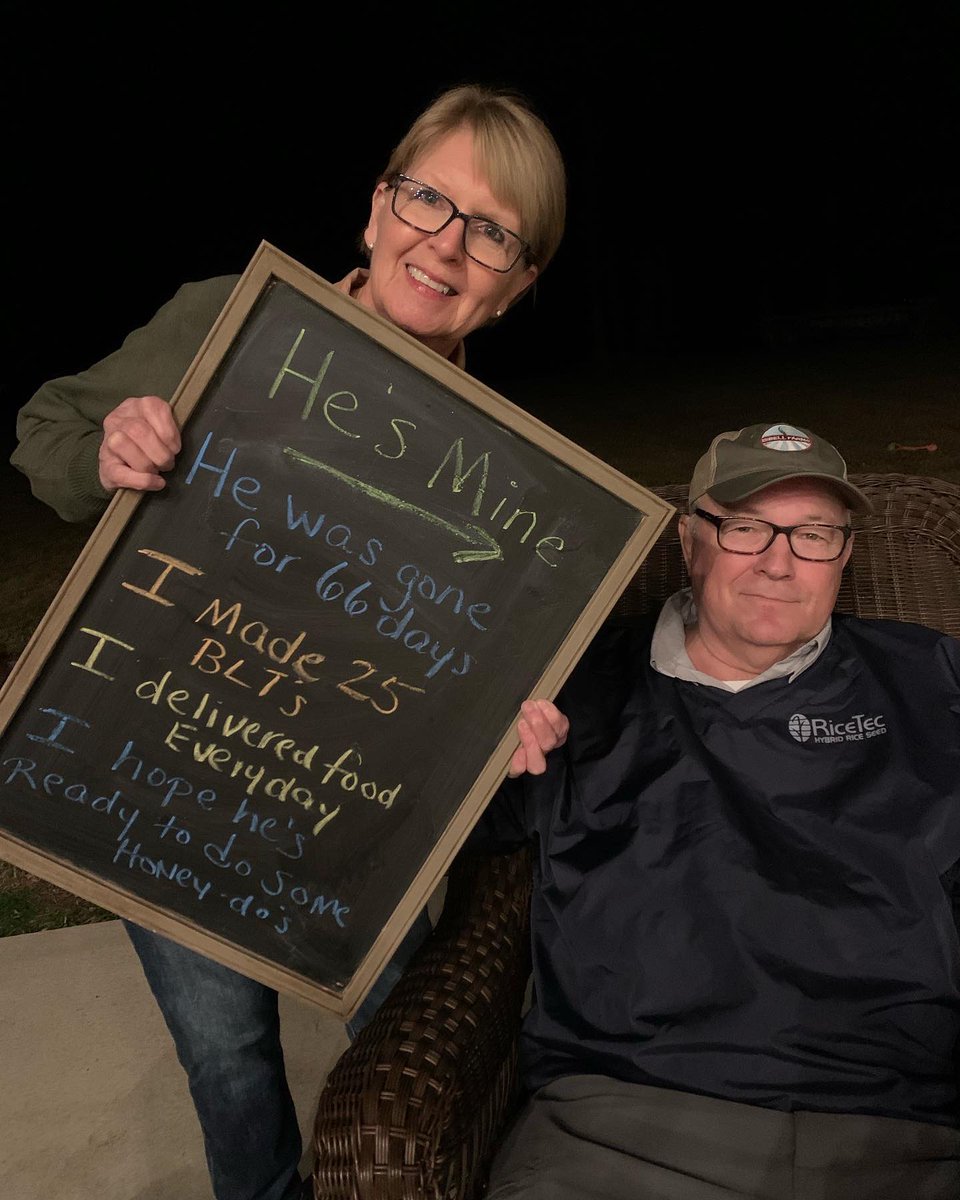 He's Mine
He was gone
for 66 days
I Made 25
BLTs
I delivered food
Everyday
I hope he's
Ready to do some
Honey-do's
RiceTec
HYBRID RICE SEED